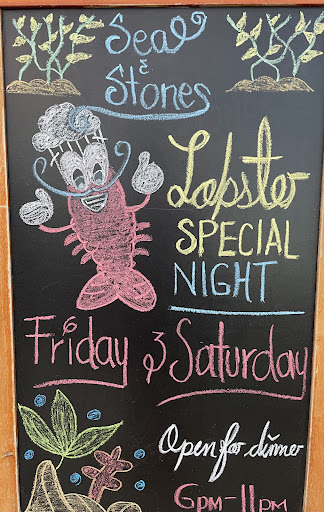 Seal
&
Stones
Lobster
SPECIAL
NIGHT
Friday & Saturday
Open for dinner
6pm-11pm